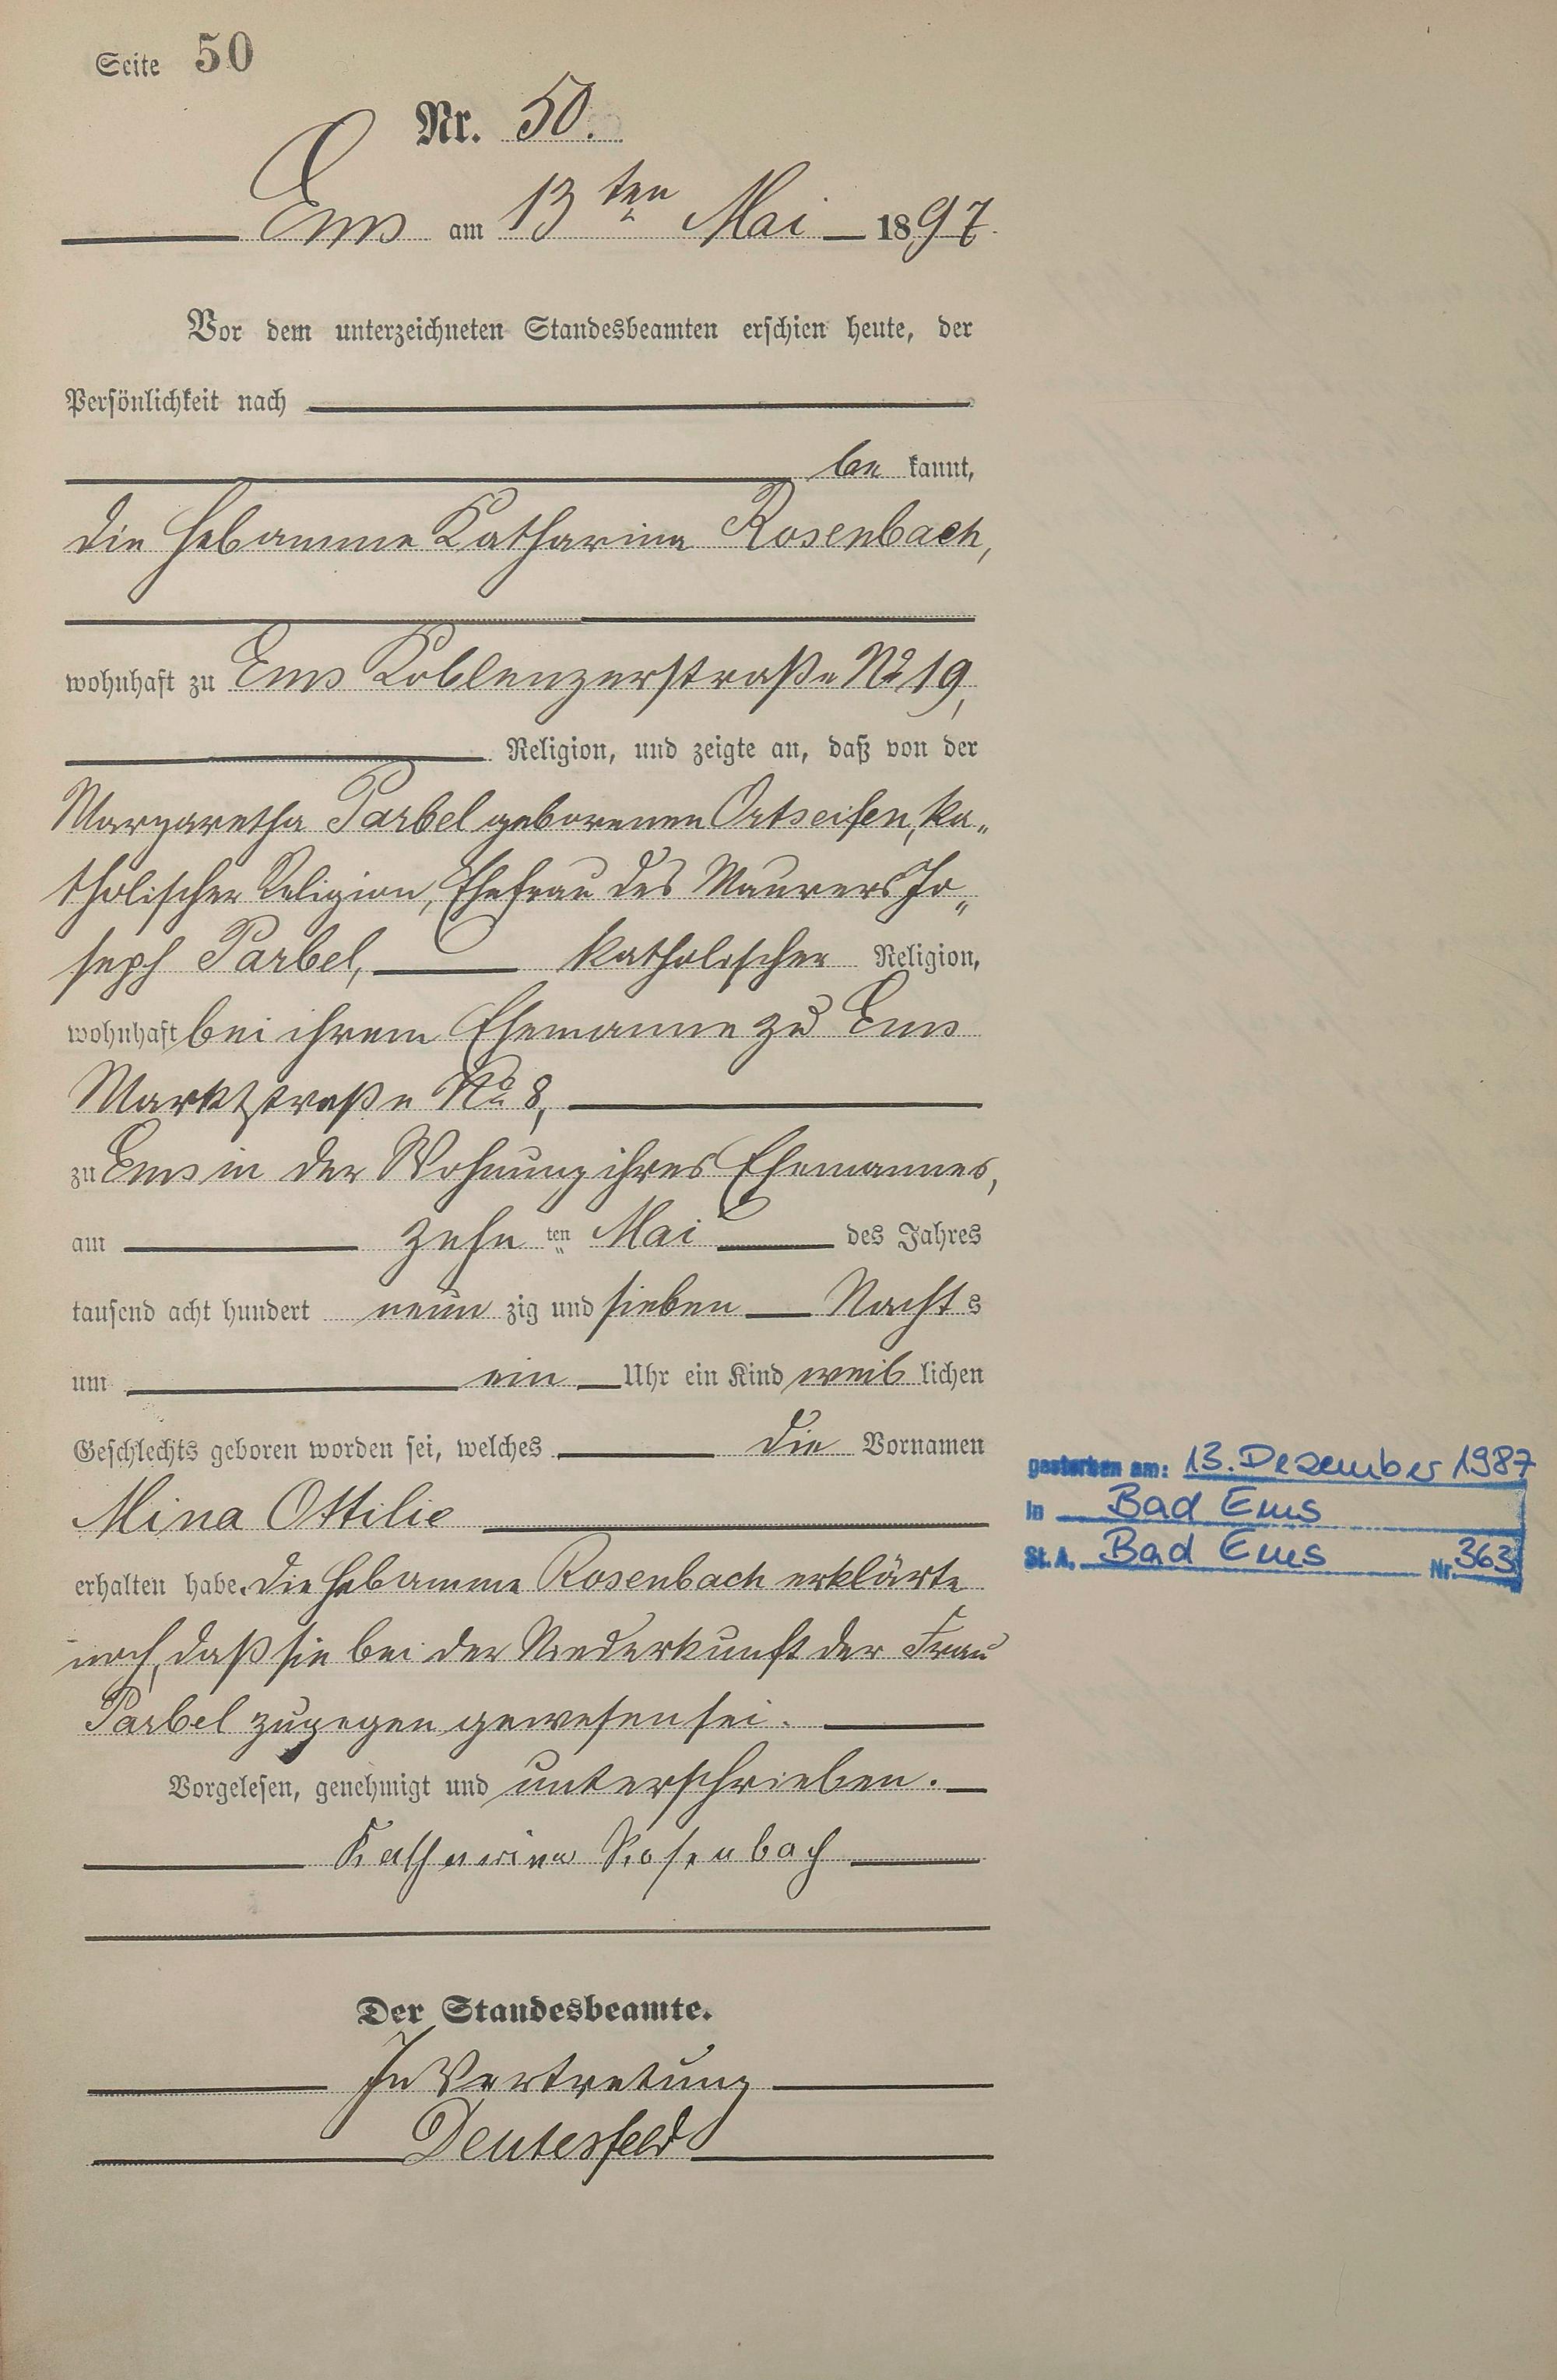 Seite 50
Nr. 50.
Ems am 13ten Mai 1897
Vor dem unterzeichneten Standesbeamten erschien heute, der
Persönlichkeit nach
be kannt,
die Hebamme Katharina Rosenbach,
wohnhaft zu Ems Koblenzerstraße No 19,
Religion, und zeigte an, daß von der
Margaretha Parbel geborenen Ortseifen, ka„
tholischer Religion, Ehefrau des Maurers Jo„
seph Parbel, katholischer Religion,
wohnhaft bei ihrem Ehemanne zu Ems
Marktstraße No 8,
zu Ems in der Wohnung ihres Ehemannes,
am zehn ten Mai des Jahres
tausend acht hundert neun zig und sieben Nacht s
um ein Uhr ein Kind weib lichen
Geschlechts geboren worden sei, welches die Vornamen
Mina Ottilie
erhalten habe. Die Hebamme Rosenbach erklärte
noch, daß sie bei der Niederkunft der Frau
Parbel zugegen gewesen sei.
Vorgelesen, genehmigt und unterschrieben.
Katharina Rosenbach
Der Standesbeamte.
In Vertretung
Deutesfeld
gestorben am: 13. Dezember 1987
in Bad Ems
St. A. Bad Ems Nr. 363